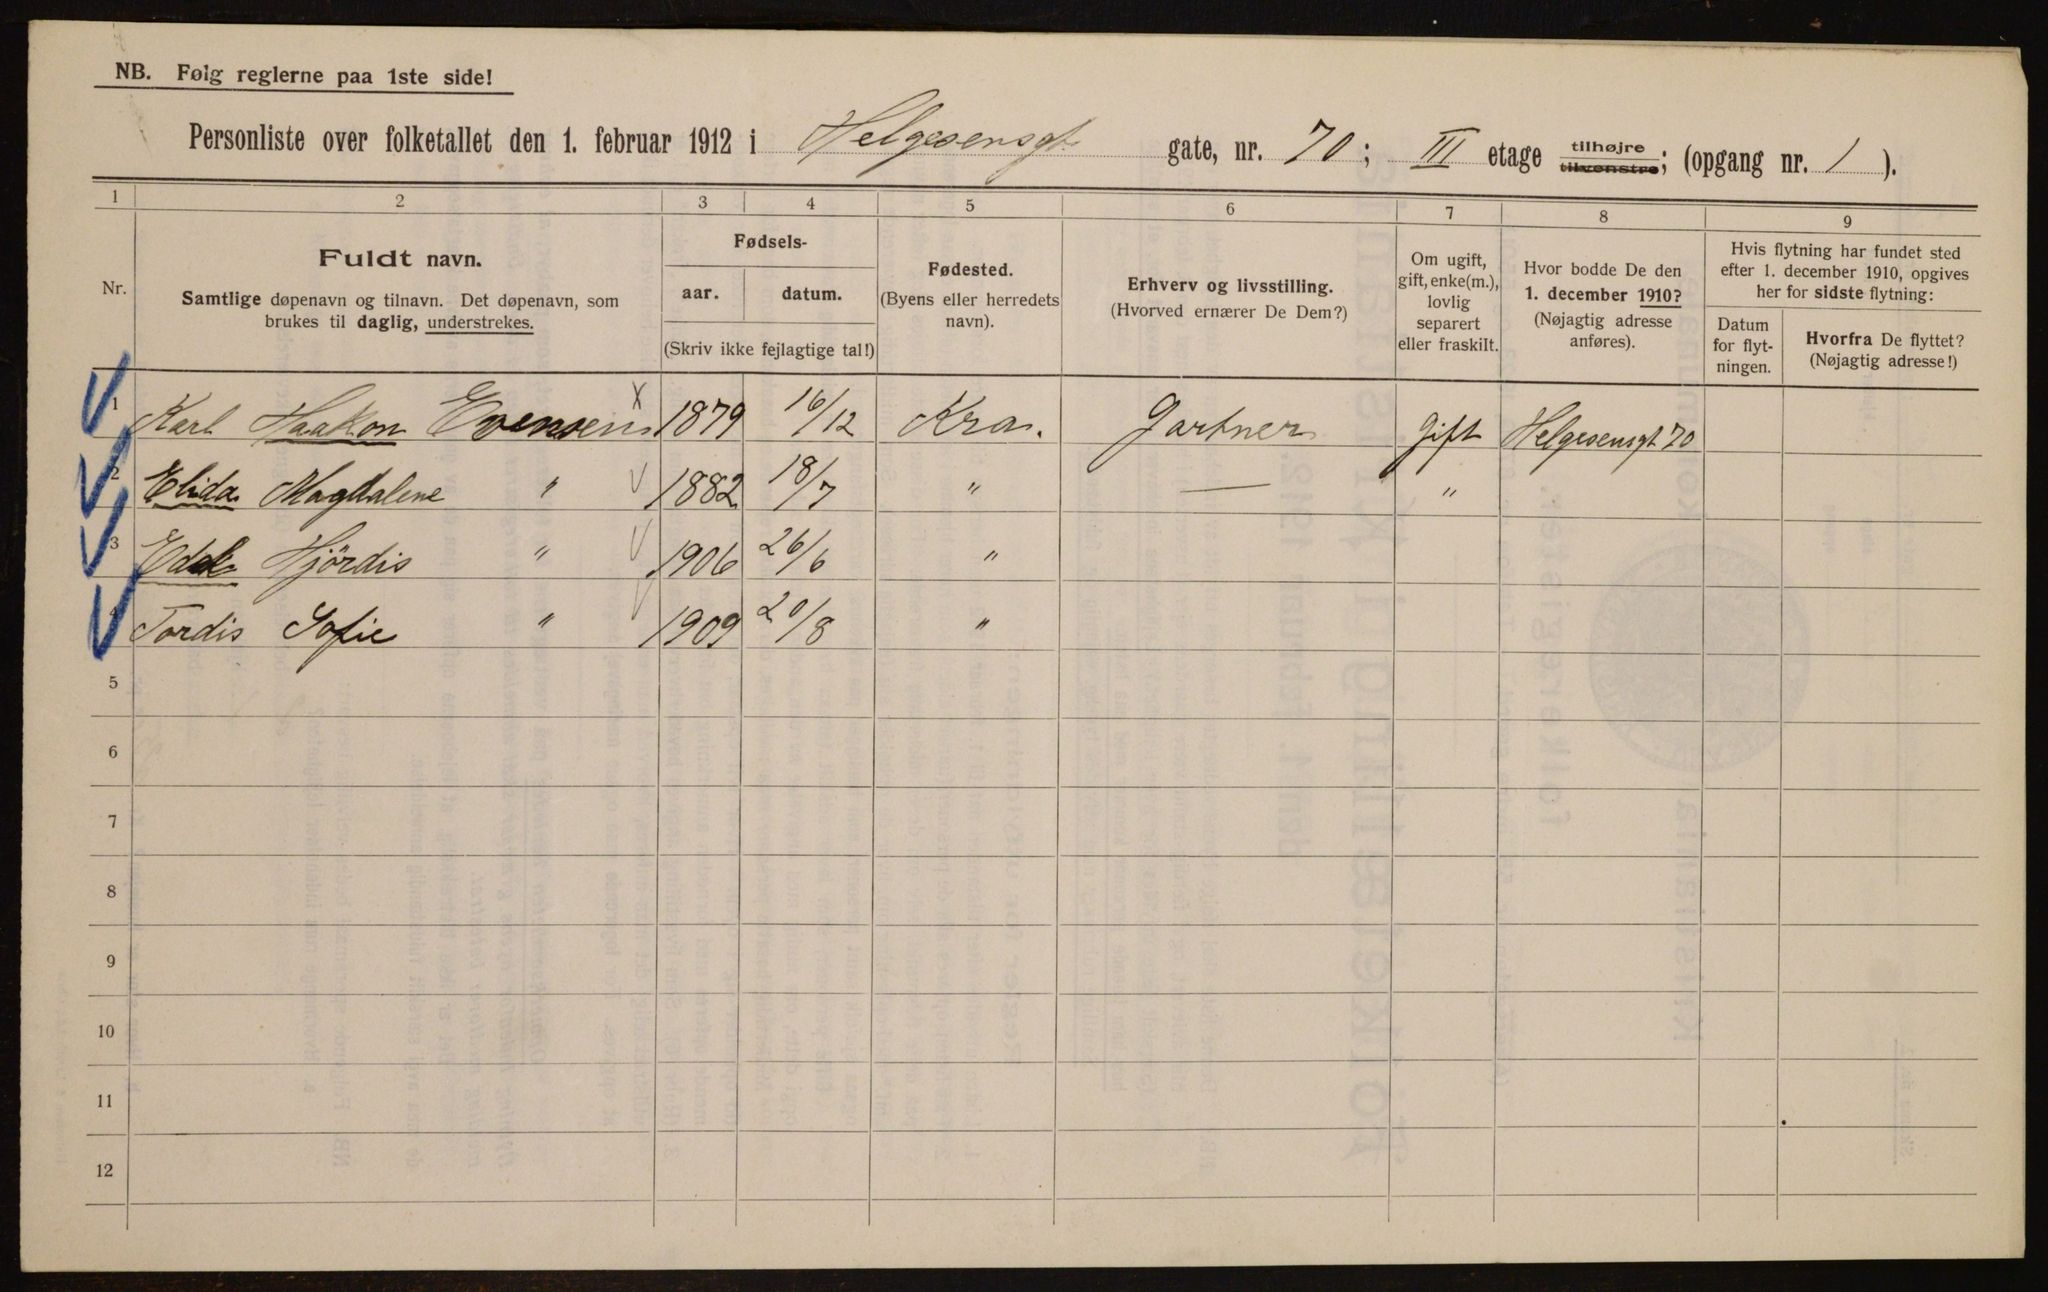 NB. Følg reglerne paa 1ste side!
Personliste over folketallet den 1. februar 1912 i Helgesensgt. gate, nr. 70; III etage tilhøjre tilvenstre; (opgang nr. 1 ).
1 2 3 4 5 6 7 8 9
Nr.
Fuldt navn.
Samtlige døpenavn og tilnavn. Det døpenavn, som
brukes til daglig, understrekes.
Fødsels-
aar. datum.
(Skriv ikke fejlagtige tal!)
Fødested.
(Byens eller herredets
navn).
Erhverv og livsstilling.
(Hvorved ernærer De Dem?)
Om ugift,
gift, enke(m.),
lovlig
separert
eller fraskilt.
Hvor bodde De den
1. december 1910?
(Nøjagtig adresse
anføres).
Hvis flytning har fundet sted
efter 1. december 1910, opgives
her for sidste flytning:
Datum
for flyt-
ningen.
Hvorfra De flyttet?
(Nøjagtig adresse!)
1 Karl Haakon Evensen x 1879 16/12 Kra. Gartner Gift Helgesensgt 70
2 Elida Magdalene " 1882 18/7 " — "
3 Hjördis " 1906 26/6 "
4 Tordis Sofie " 1909 20/8 "
5
6
7
8
9
10
11
12